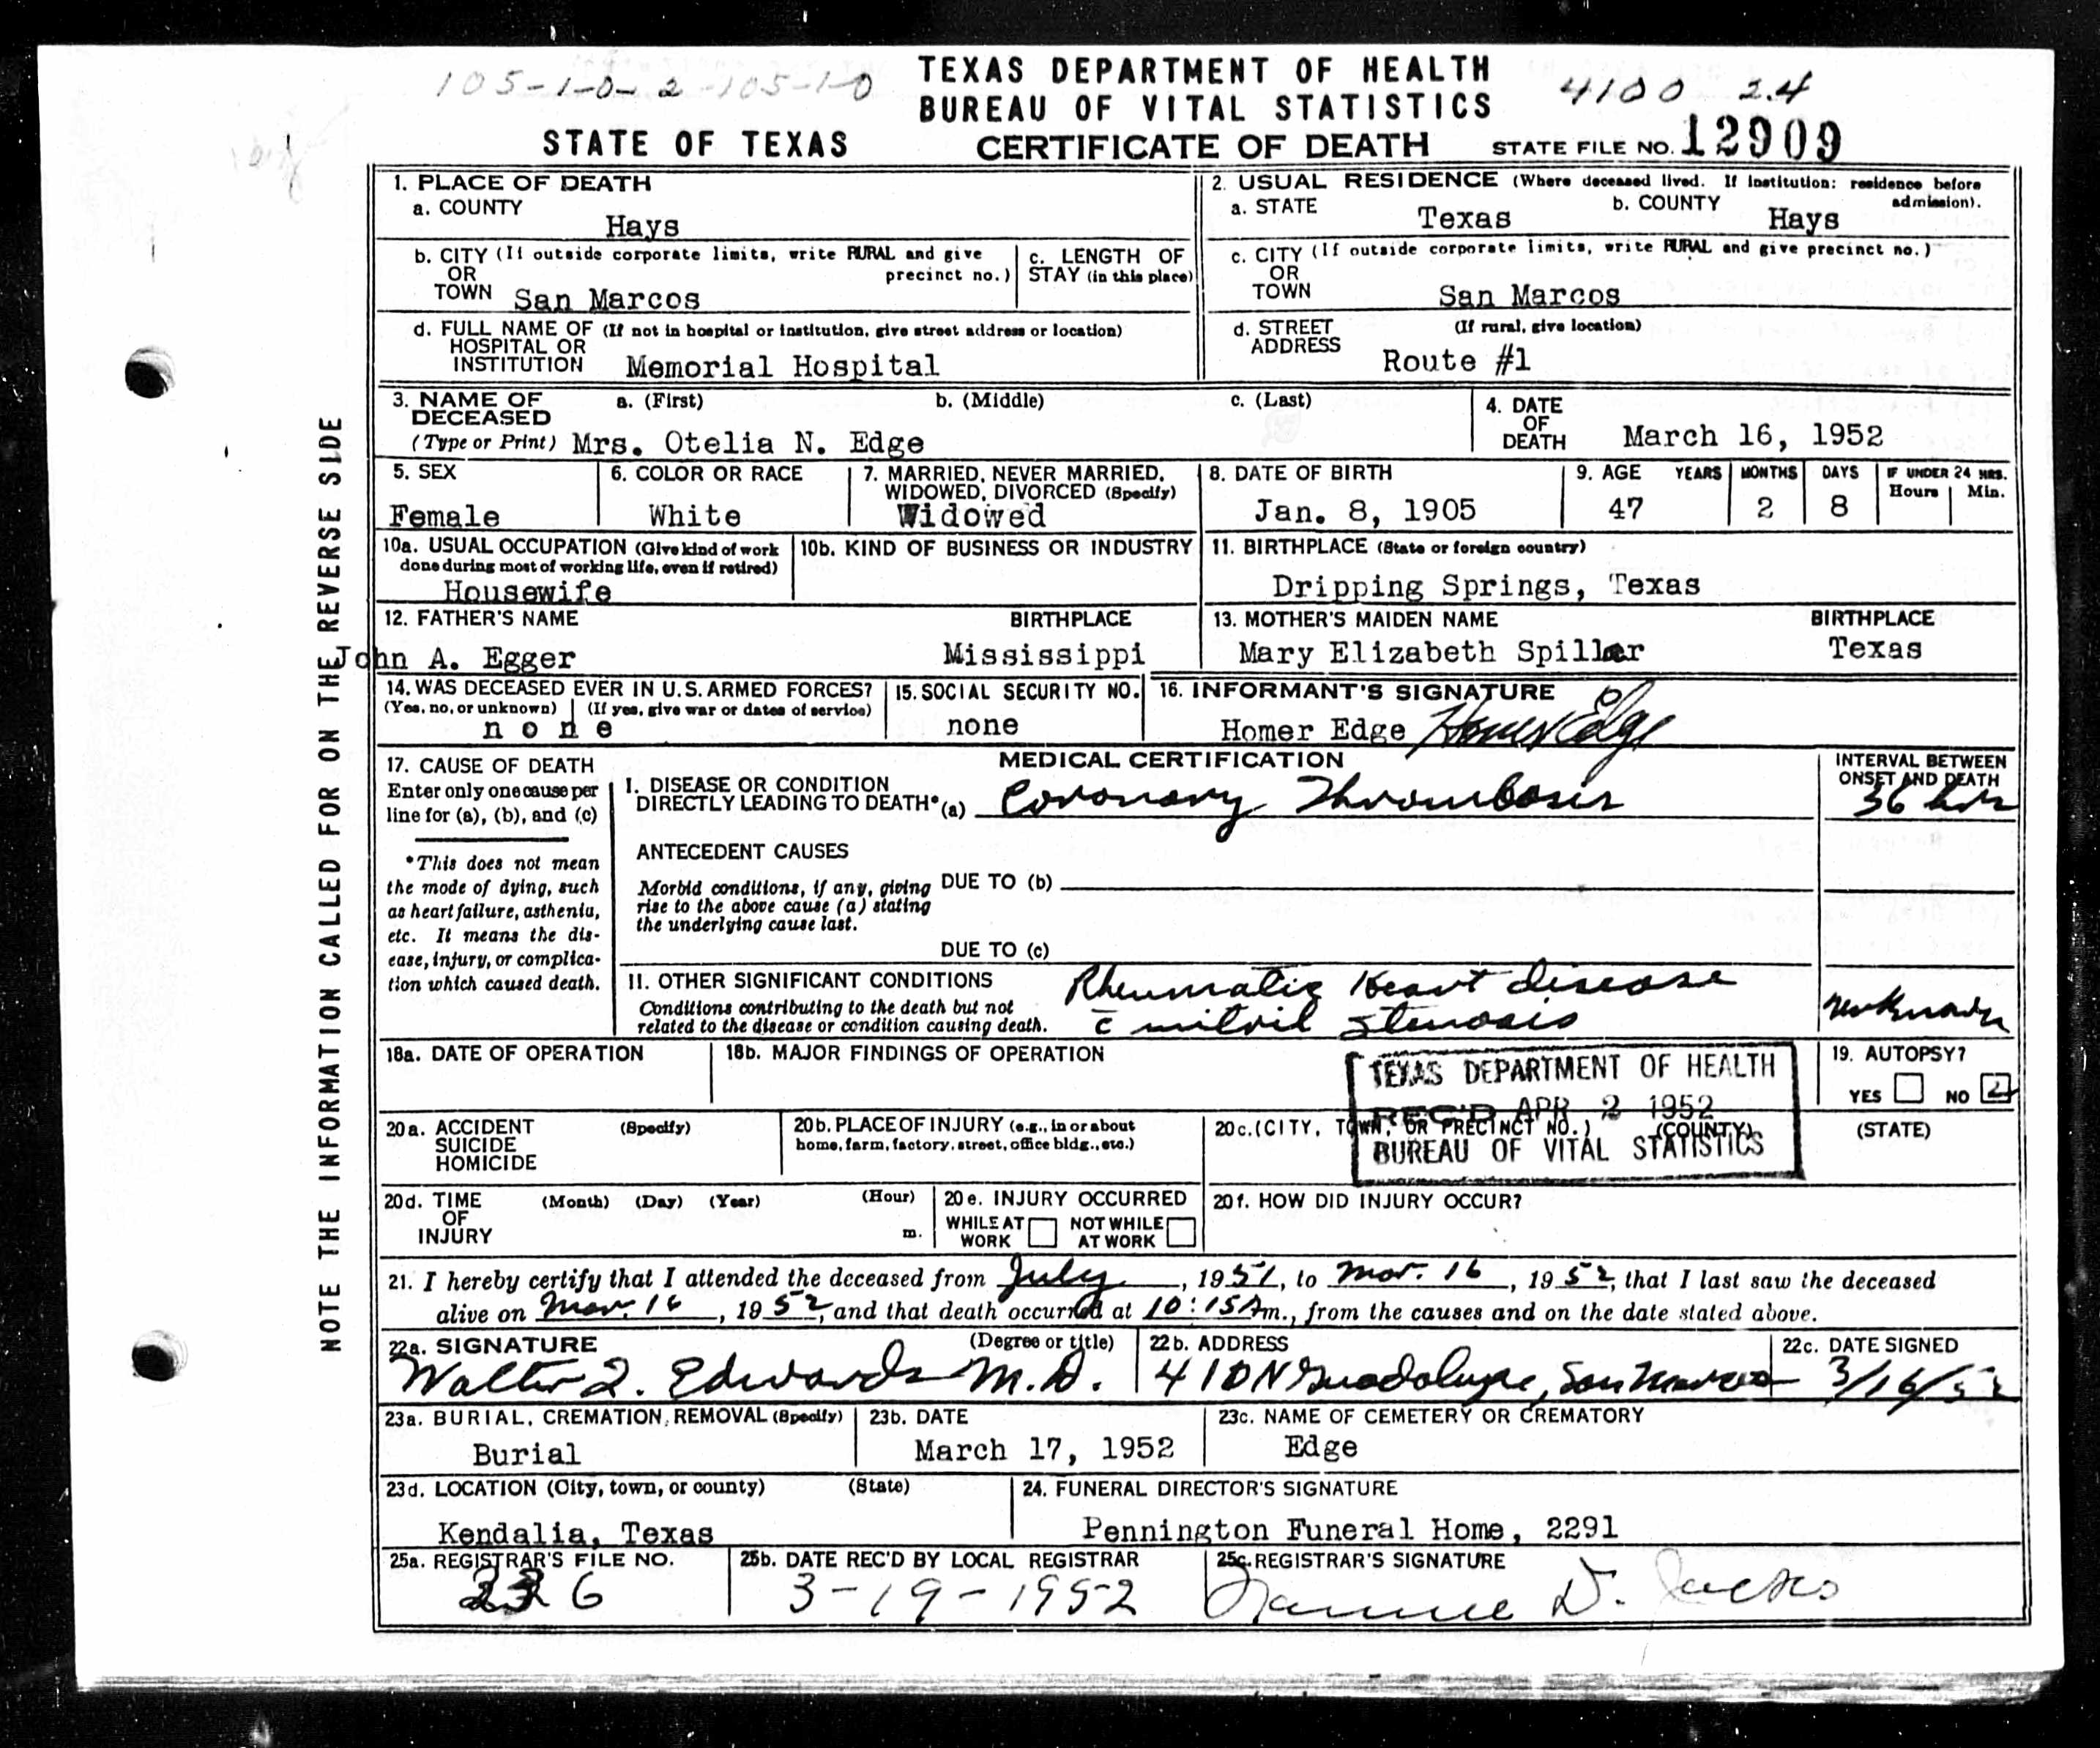 105-1-0- 2 -105-1-0
TEXAS DEPARTMENT OF HEALTH
BUREAU OF VITAL STATISTICS
4100 2.4
STATE OF TEXAS CERTIFICATE OF DEATH STATE FILE NO. 12909
NOTE THE INFORMATION CALLED FOR ON THE REVERSE SIDE
1. PLACE OF DEATH
a. COUNTY
Hays
2. USUAL RESIDENCE (Where deceased lived. If institution: residence before admission).
a. STATE Texas b. COUNTY Hays
b. CITY (If outside corporate limits, write RURAL and give precinct no.)
OR
TOWN San Marcos
c. LENGTH OF
STAY (in this place)
c. CITY (If outside corporate limits, write RURAL and give precinct no.)
OR
TOWN San Marcos
d. FULL NAME OF (If not in hospital or institution, give street address or location)
HOSPITAL OR
INSTITUTION Memorial Hospital
d. STREET (If rural, give location)
ADDRESS Route #1
3. NAME OF a. (First) b. (Middle) c. (Last)
DECEASED
(Type or Print) Mrs. Otelia N. Edge
4. DATE
OF
DEATH March 16, 1952
5. SEX
Female
6. COLOR OR RACE
White
7. MARRIED, NEVER MARRIED,
WIDOWED, DIVORCED (Specify)
Widowed
8. DATE OF BIRTH
Jan. 8, 1905
9. AGE YEARS MONTHS DAYS IF UNDER 24 HRS.
Hours Min.
47 2 8
10a. USUAL OCCUPATION (Give kind of work
done during most of working life, even if retired)
Housewife
10b. KIND OF BUSINESS OR INDUSTRY
11. BIRTHPLACE (State or foreign country)
Dripping Springs, Texas
12. FATHER'S NAME BIRTHPLACE
John A. Egger Mississippi
13. MOTHER'S MAIDEN NAME BIRTHPLACE
Mary Elizabeth Spiller Texas
14. WAS DECEASED EVER IN U.S. ARMED FORCES?
(Yes, no, or unknown) (If yes, give war or dates of service)
none
15. SOCIAL SECURITY NO.
none
16. INFORMANT'S SIGNATURE
Homer Edge Homer Edge
17. CAUSE OF DEATH
Enter only one cause per
line for (a), (b), and (c)
*This does not mean
the mode of dying, such
as heart failure, asthenia,
etc. It means the dis-
ease, injury, or complica-
tion which caused death.
MEDICAL CERTIFICATION
INTERVAL BETWEEN
ONSET AND DEATH
I. DISEASE OR CONDITION
DIRECTLY LEADING TO DEATH* (a) Coronary Thrombosis 36 hrs
ANTECEDENT CAUSES
Morbid conditions, if any, giving
rise to the above cause (a) stating
the underlying cause last.
DUE TO (b)
DUE TO (c)
II. OTHER SIGNIFICANT CONDITIONS
Conditions contributing to the death but not
related to the disease or condition causing death.
Rheumatic Heart disease
c̄ mitril stenosis
18a. DATE OF OPERATION
18b. MAJOR FINDINGS OF OPERATION
19. AUTOPSY?
YES NO
TEXAS DEPARTMENT OF HEALTH
REC'D APR 2 1952
BUREAU OF VITAL STATISTICS
20a. ACCIDENT (Specify)
SUICIDE
HOMICIDE
20b. PLACE OF INJURY (e.g., in or about
home, farm, factory, street, office bldg., etc.)
20c. (CITY, TOWN, OR PRECINCT NO.) (COUNTY) (STATE)
20d. TIME (Month) (Day) (Year) (Hour)
OF
INJURY m.
20e. INJURY OCCURRED
WHILE AT NOT WHILE
WORK AT WORK
20f. HOW DID INJURY OCCUR?
21. I hereby certify that I attended the deceased from July, 1951, to Mar. 16, 1952, that I last saw the deceased
alive on Mar. 16, 1952, and that death occurred at 10:15 Am., from the causes and on the date stated above.
22a. SIGNATURE (Degree or title)
Walter L. Edwards M.D.
22b. ADDRESS
410 N Guadalupe, San Marcos
22c. DATE SIGNED
3/16/52
23a. BURIAL, CREMATION, REMOVAL (Specify)
Burial
23b. DATE
March 17, 1952
23c. NAME OF CEMETERY OR CREMATORY
Edge
23d. LOCATION (City, town, or county) (State)
Kendalia, Texas
24. FUNERAL DIRECTOR'S SIGNATURE
Pennington Funeral Home, 2291
25a. REGISTRAR'S FILE NO.
25b. DATE REC'D BY LOCAL REGISTRAR
3-19-1952
25c. REGISTRAR'S SIGNATURE